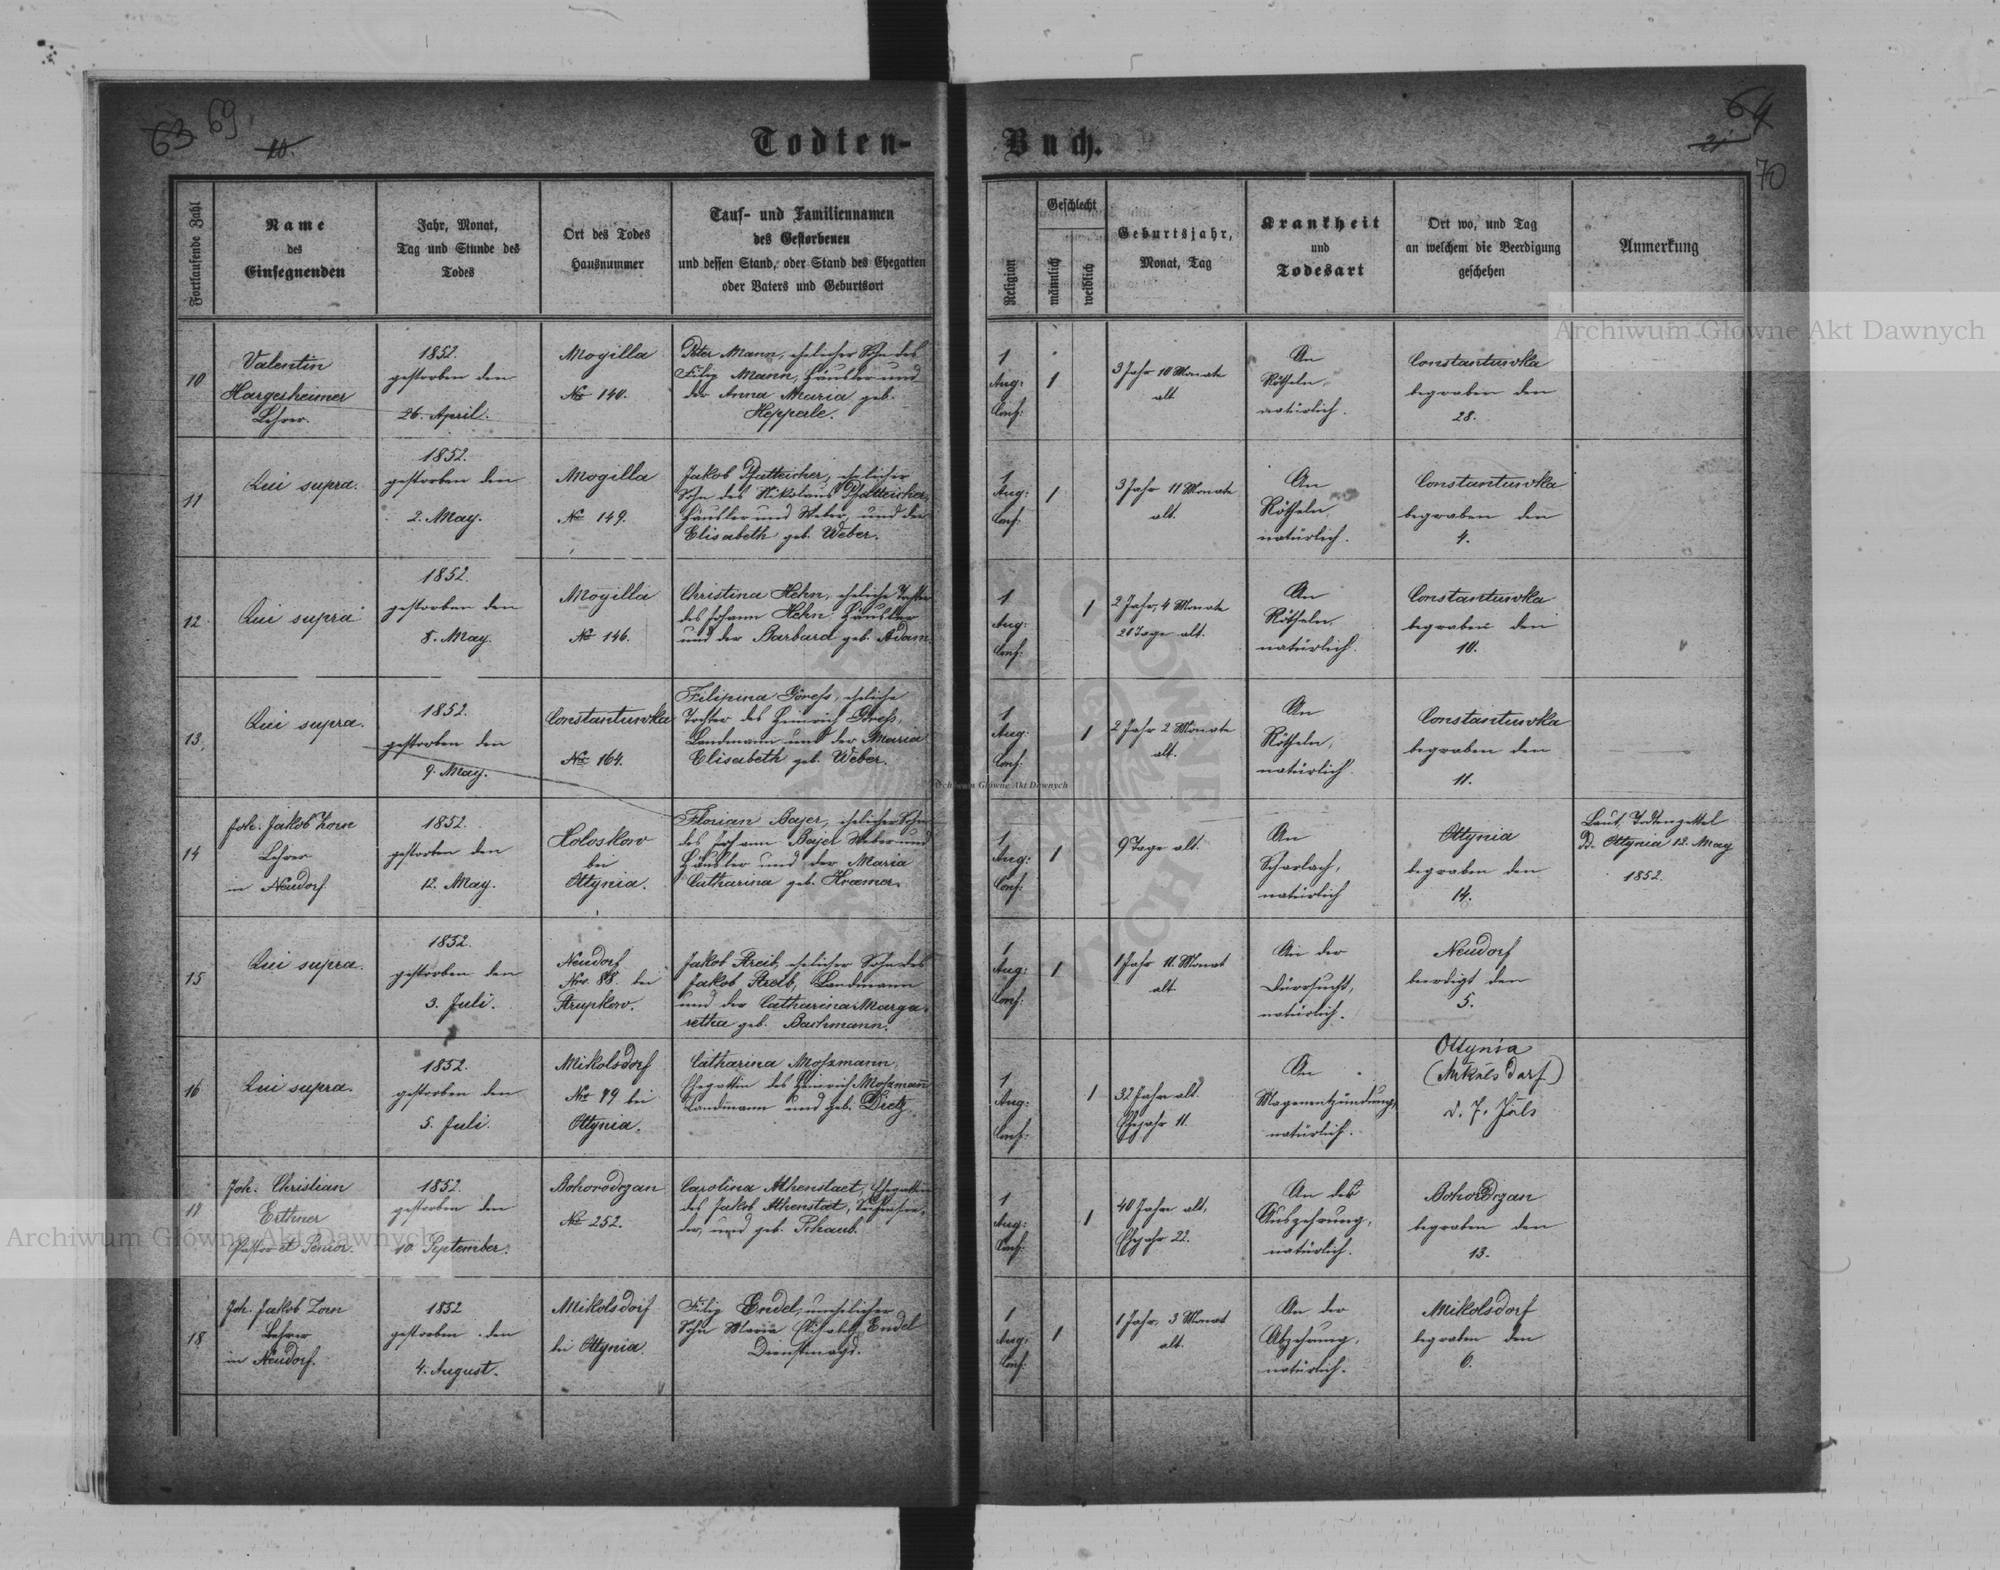 63 69
10.
Todten-
Buch.
64
21
70
Fortlaufende Zahl
Name
des
Einsegnenden
Jahr, Monat,
Tag und Stunde des
Todes
Ort des Todes
Hausnummer
Tauf- und Familiennamen
des Gestorbenen
und dessen Stand, oder Stand des Ehegatten
oder Vaters und Geburtsort
Religion
Geschlecht
männlich
weiblich
Geburtsjahr,
Monat, Tag
Krankheit
und
Todesart
Ort wo, und Tag
an welchem die Beerdigung
geschehen
Anmerkung
10
Valentin
Hargesheimer
Lehrer.
1852.
gestorben den
26. April.
Mogilla
No 140.
Peter Mann, ehelicher Sohn des
Filip Mann, Häusler und
der Anna Maria geb.
Hepperle.
1
Aug:
Conf:
1
3 Jahr 10 Monate
alt
An
Rötheln,
natürlich.
Constantuwka
begraben den
28.
11
Qui supra.
1852.
gestorben den
2. May.
Mogilla
No 149.
Jakob Pfatteicher, ehelicher
Sohn des Nikolaus Pfatteicher,
Häusler und Weber, und der
Elisabeth geb. Weber.
1
Aug:
Conf:
1
3 Jahr 11 Monate
alt.
An
Rötheln,
natürlich.
Constantuwka
begraben den
4.
12
Qui supra
1852.
gestorben den
8. May.
Mogilla
No 146.
Christina Hehn, eheliche Tochter
des Johann Hehn, Häusler
und der Barbara geb. Adam.
1
Aug:
Conf:
1
2 Jahr, 4 Monate
21 Tage alt.
An
Rötheln,
natürlich.
Constantuwka
begraben den
10.
13.
Qui supra.
1852.
gestorben den
9. May.
Constantuwka
No 164.
Filipina Göress, eheliche
Tochter des Heinrich Göress,
Landmann und der Maria
Elisabeth geb. Weber.
1
Aug:
Conf:
1
2 Jahr 2 Monate
alt.
An
Rötheln,
natürlich.
Constantuwka
begraben den
11.
14
Joh. Jakob Zorn
Lehrer
in Neudorf.
1852.
gestorben den
12. May.
Holoskow
bei
Ottynia.
Florian Bajer, ehelicher Sohn
des Johann Bajer Weber und
Häusler und der Maria
Catharina geb. Kraemer.
1
Aug:
Conf:
1
9 Tage alt.
An
Scharlach,
natürlich
Ottynia
begraben den
14.
Laut Todtenzettel
D. Ottynia 12. May
1852.
15
Qui supra.
1852.
gestorben den
3. Juli.
Neudorf
Nro. 88. bei
Strupkow.
Jakob Streib, ehelicher Sohn des
Jakob Streib, Landmann
und der Catharina Marga-
retha geb. Bachmann.
1
Aug:
Conf:
1
1 Jahr 11. Monat
alt.
An der
Dürrsucht,
natürlich.
Neudorf
beerdigt den
5.
16
Qui supra.
1852.
gestorben den
5. Juli.
Mikolsdorf
No 79 bei
Ottynia.
Catharina Mossmann,
Ehegattin des Heinrich Mossmann
Landmann und geb. Dietz.
1
Aug:
Conf:
1
32 Jahre alt.
Ehejahr 11.
An
Magenentzündung,
natürlich.
Ottynia
(Mikulsdorf)
d. 7. Juls
17
Joh. Christian
Erthner
Pastor et Senior.
1852.
gestorben den
10. September.
Bohorodczan
No 252.
Carolina Athenstaet, Ehegattin
des Jakob Athenstät, Seifensie-
der, und geb. Schaub.
1
Aug:
Conf:
1
40 Jahre alt,
Ehejahr 22.
An der
Auszehrung,
natürlich.
Bohorodczan
begraben den
13.
18
Joh. Jakob Zorn
Lehrer
in Neudorf.
1852
gestorben den
4. August.
Mikolsdorf
bei Ottynia.
Filip Endel, unehelicher
Sohn Maria Elisabeth Endel
Dienstmagd.
1
Aug:
Conf:
1
1 Jahr, 3 Monat
alt.
An der
Abzehrung,
natürlich.
Mikolsdorf
begraben den
6.
Archiwum Główne Akt Dawnych
Archiwum Główne Akt Dawnych
Archiwum Główne Akt Dawnych